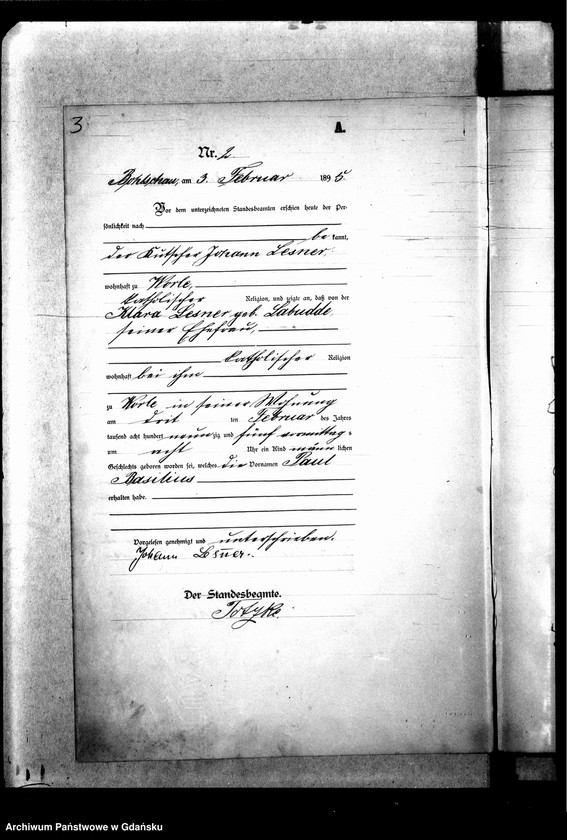 3
A.
Nr. 2
Bohlschau, am 3. Februar 1895
Vor dem unterzeichneten Standesbeamten erschien heute der Per-
sönlichkeit nach
be kannt,
der Kutscher Johann Lesner,
wohnhaft zu Worle,
katholischer Religion, und zeigte an, daß von der
Klara Lesner geb. Labudde
seiner Ehefrau,
katholischer Religion
wohnhaft bei ihm
zu Worle in seiner Wohnung
am drei ten Februar des Jahres
tausend acht hundert neunzig und fünf vormittag-
um acht Uhr ein Kind männlichen
Geschlechts geboren worden sei, welches die Vornamen Paul
Basilius
erhalten habe.
Vorgelesen genehmigt und unterschrieben.
Johann
Der Standesbeamte.
Archiwum Państwowe w Gdańsku